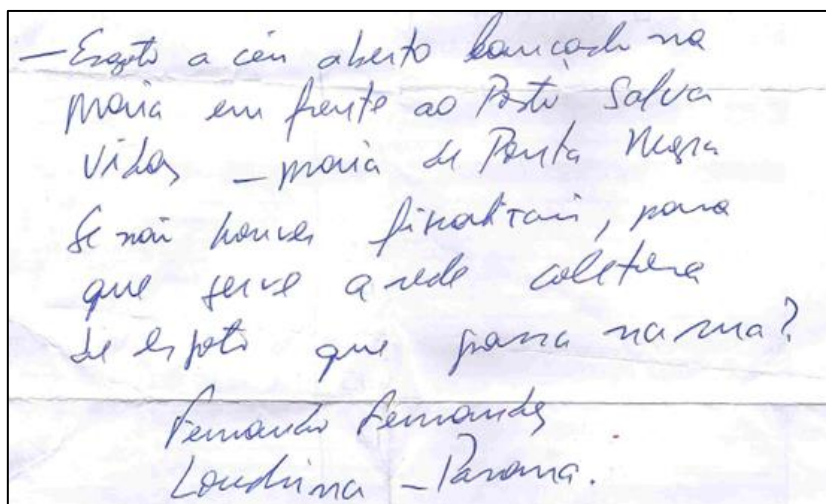 — Esgoto a céu aberto lançado na
praia em frente ao Posto Salva
Vidas — praia de Ponta Negra
Se não houver fiscalização, para
que serve a rede coletora
de esgoto que passa na rua?
Fernando Fernandes
Londrina - Paraná.